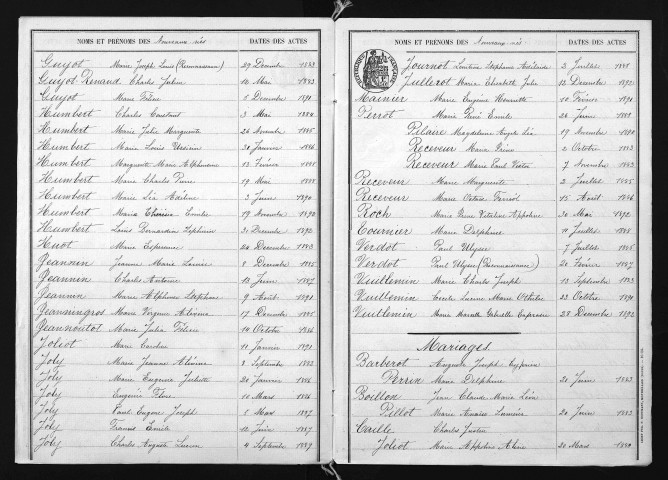 NOMS ET PRÉNOMS DES Nouveaux nés DATES DES ACTES
Guyot Marie Joseph Louis (Reconnaissance) 29 Décembre 1883
Guyot Renaud Charles 1883
Guyot Marie 5 Décembre 1891
Humbert Charles Constant 3 Mai 1884
Humbert Marie Julie Marguerite 26 Novembre 1885
Humbert Marie Louis 30 Janvier 1886
Humbert Marguerite Marie Alphonsine 13 Février 1888
Humbert Marie Charles Pierre 19 Mai 1888
Humbert Marie Léa 3 Juin 1890
Humbert Maria 19 Novembre 1890
Humbert Louis Bernardin 31 Décembre 1892
Huot Marie 24 Décembre 1883
Jeannin Jeanne Marie Louise 8 Décembre 1885
Jeannin Charles Antoine 13 Juin 1887
Jeannin Marie Alphonse Stéphane 9 Août 1891
Jeanningros Marie Virginie 17 Décembre 1885
Jeannoutot Marie Julia 10 Octobre 1886
Joliot Marie Caroline 11 Janvier 1891
Joly Marie Jeanne 8 Septembre 1883
Joly Marie Eugénie Juliette 20 Janvier 1886
Joly Eugénie 10 Mars 1886
Joly Paul Eugène Joseph 5 Mars 1887
Joly Francis Emile 12 Juin 1887
Joly Charles Auguste Lucien 4 Septembre 1889
NOMS ET PRÉNOMS DES Nouveaux nés DATES DES ACTES
Journot Stéphanie Adélaïde 2 Juillet 1885
Jullerot Maria Elisabeth Julie 12 Décembre 1892
Mainier Marie Eugénie Henriette 10 Février 1891
Perrot Marie René Emile 26 Juin 1888
Pelaire Magdeleine Angèle Léa 19 Novembre 1890
Receveur Maria 2 Octobre 1883
Receveur Marie Paul Victor 7 Novembre 1883
Receveur Marie Marguerite 2 Juillet 1885
Receveur Marie 15 Août 1886
Roch Maria Apolline 30 Mai 1892
Tournier Marie Delphine 11 Juillet 1888
Verdot Paul Ulysse 7 Juillet 1885
Verdot Paul Ulysse (Reconnaissance) 20 Février 1887
Vuillemin Marie Charles Joseph 13 Septembre 1883
Vuillemin Cécile Marie 22 Octobre 1890
Vuillemin Marie Gabrielle 28 Décembre 1892
Mariages
Barberot Auguste Joseph
Perrin Maria Delphine 20 Juin 1883
Boillon Jean Claude Marie Léon
Pillot Marie 20 Juin 1883
Cuille Charles Justin
Joliot Marie Appoline Aline 20 Mars